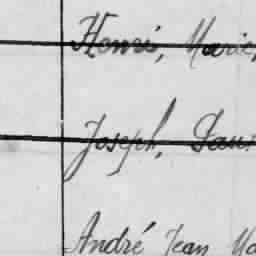 Henri, Marie,
Joseph, Paul
André Jean Ma